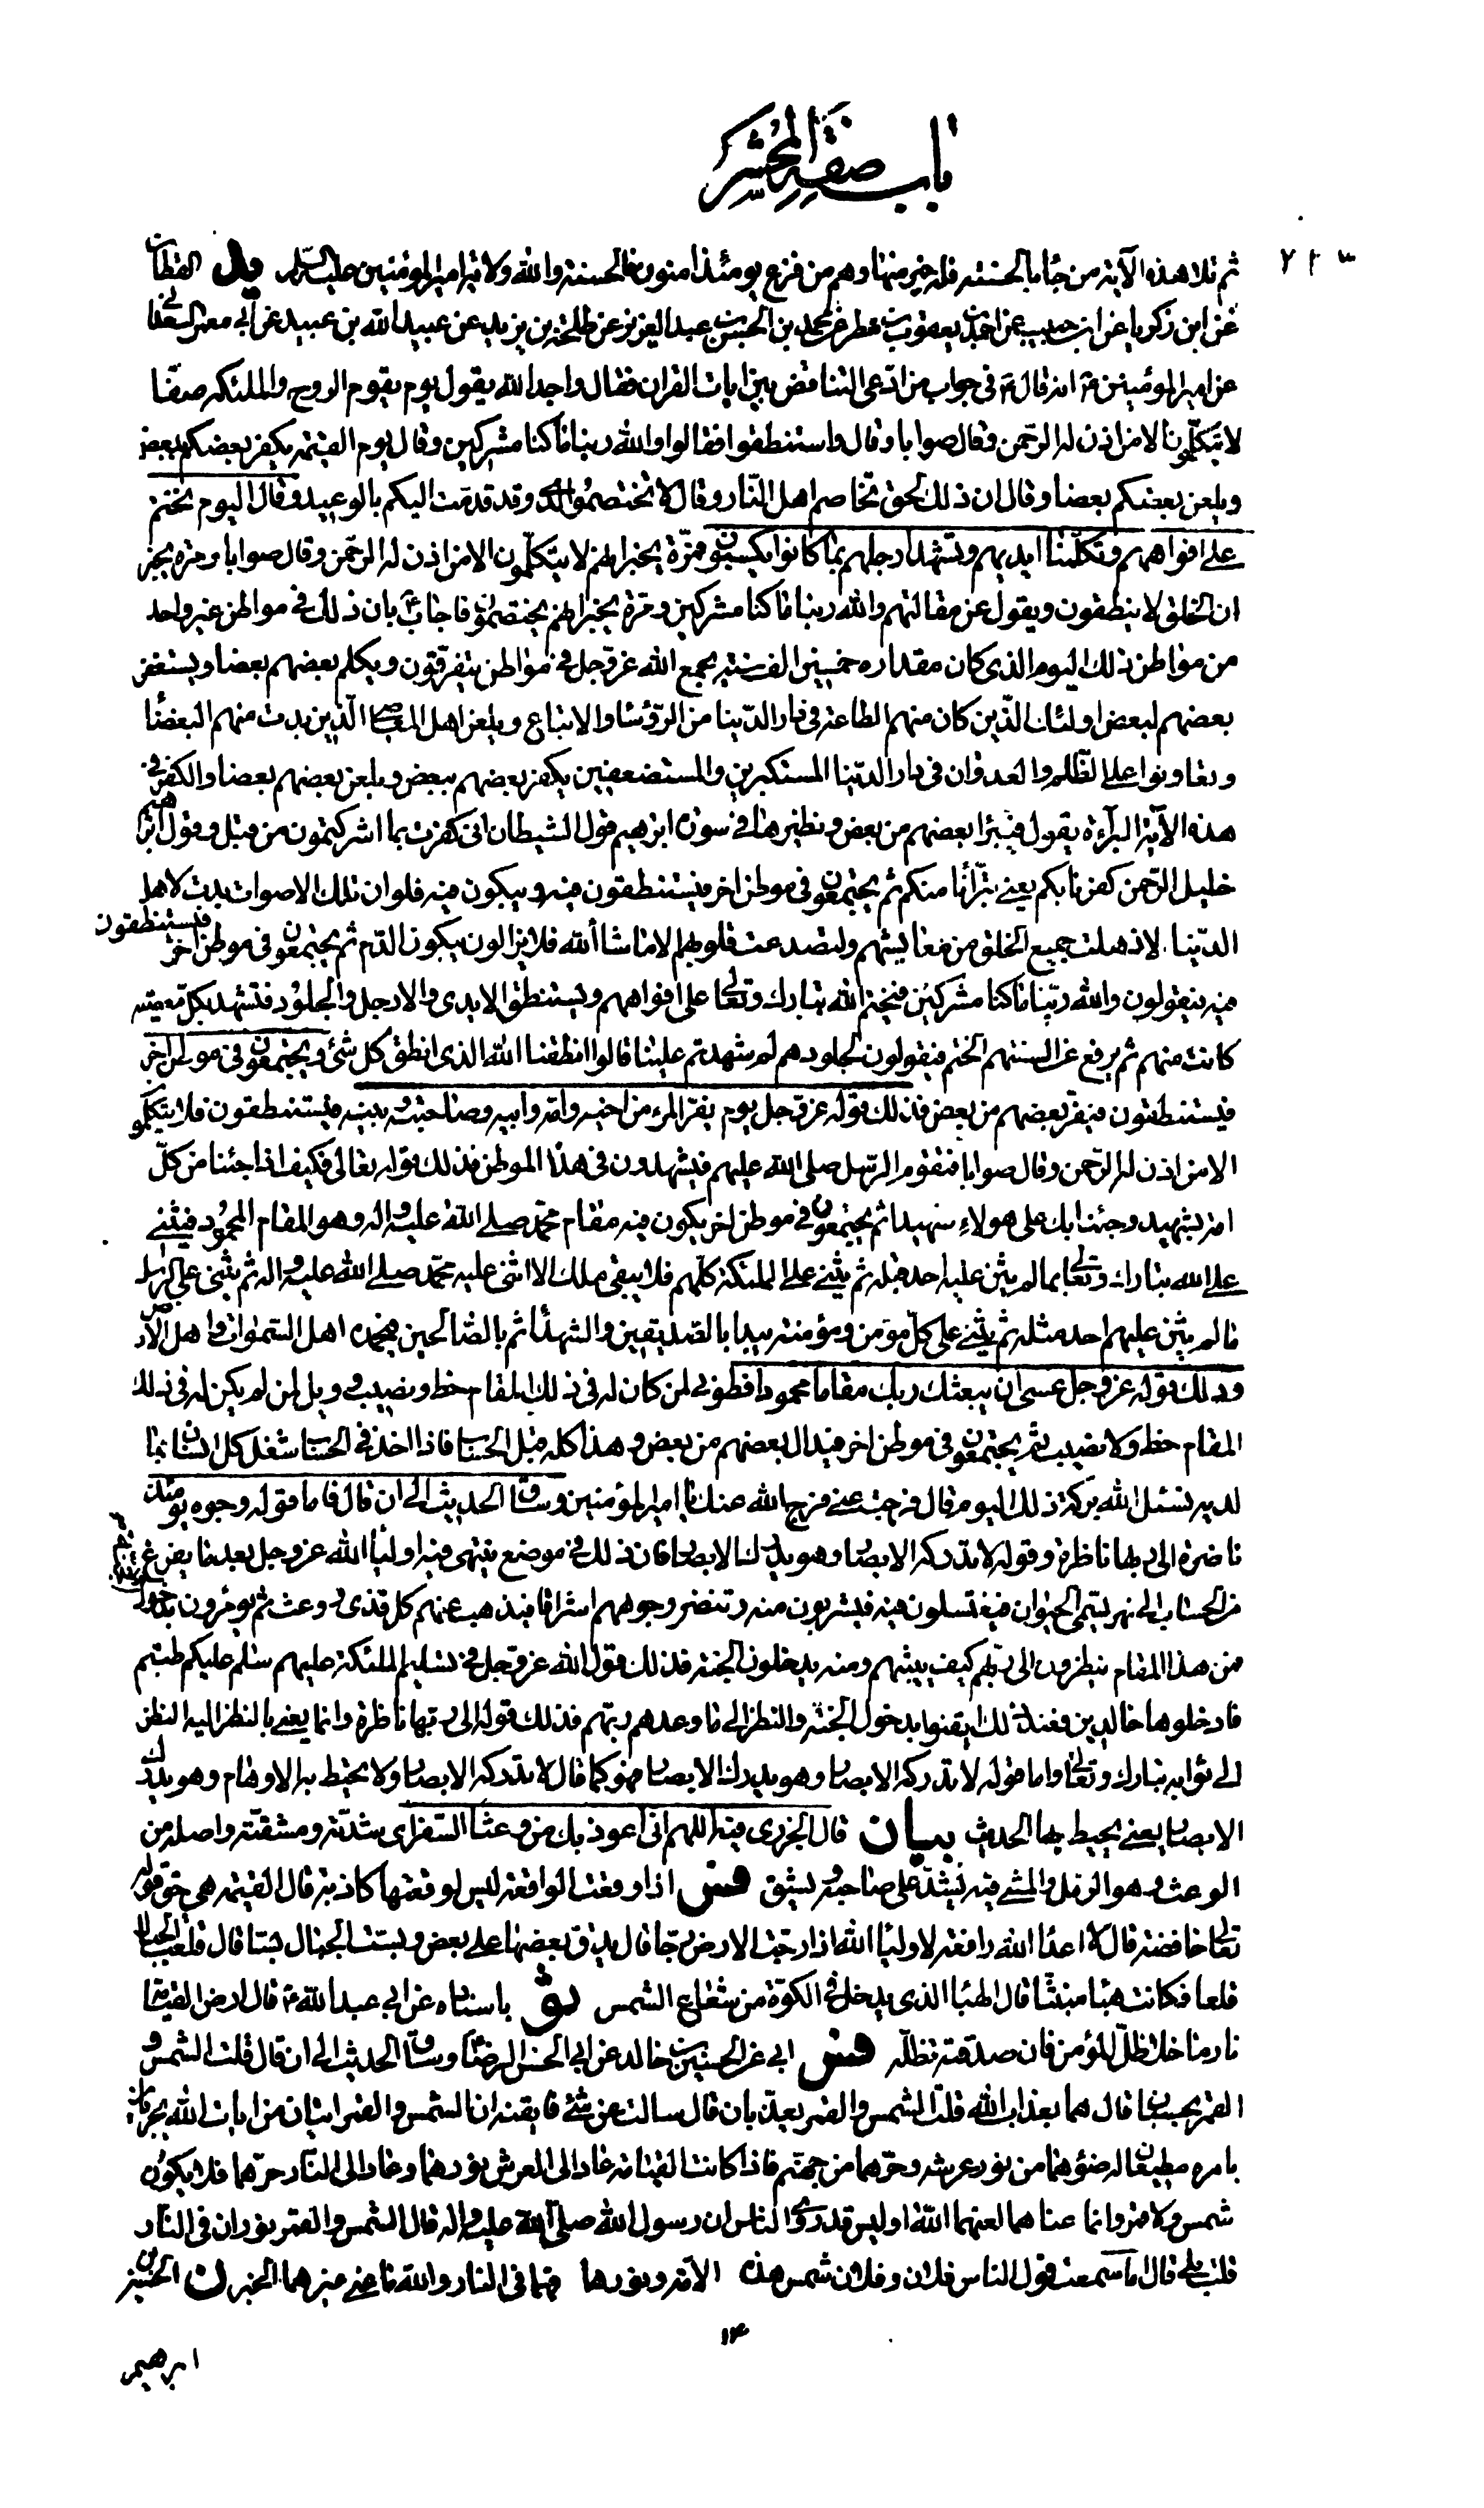 باب صفة المحشر
٢١٣
ثم تلا هذه الآية من جاء بالحسنة فله خير منها وهم من فزع يومئذ امنون فالحسنة والله ولاية امير المؤمنين عليه السلام يد القطان
عن ابن زكريا عن ابن حبيب عن احمد بن يعقوب بن مطر عن محمد بن الحسن بن عبد العزيز عن طلحة بن يزيد عن عبيد الله بن عبيد عن ابي معمر السعداني
عن امير المؤمنين ع انه قال في جواب من ادعى التناقض بين ايات القران فقال واجد الله يقول يوم يقوم الروح والملئكة صفا
لا يتكلمون الا من اذن له الرحمن وقال صوابا وقال واستنطقوا فقالوا والله ربنا ما كنا مشركين وقال يوم القيمة يكفر بعضكم ببعض
ويلعن بعضكم بعضا وقال ان ذلك لحق تخاصم اهل النار وقال لا تختصموا لدي وقد قدمت اليكم بالوعيد وقال اليوم نختم
على افواههم وتكلمنا ايديهم وتشهد ارجلهم بما كانوا يكسبون فمرة يخبر انهم لا يتكلمون الا من اذن له الرحمن وقال صوابا ومرة يخبر
ان الخلق لا ينطقون ويقول عن مقالتهم والله ربنا ما كنا مشركين ومرة يخبر انهم يختصمون فاجاب ع بان ذلك في مواطن غير واحد
من مواطن ذلك اليوم الذي كان مقداره خمسين الف سنة يجمع الله عز وجل في مواطن يتفرقون ويكلم بعضهم بعضا ويستغفر
بعضهم لبعض اولئك الذين كان منهم الطاعة في دار الدنيا من الرؤساء والاتباع ويلعن اهل المعاصي الذين بدت منهم البغضاء
وتعاونوا على الظلم والعدوان في دار الدنيا المستكبرين والمستضعفين يكفر بعضهم ببعض ويلعن بعضهم بعضا والكفر في
هذه الآية البراءة يقول فيبرأ بعضهم من بعض ونظيرها في سورة ابرهيم قول الشيطان اني كفرت بما اشركتمون من قبل وقول ابرهيم
خليل الرحمن كفرنا بكم يعني تبرأنا منكم ثم يجتمعون في موطن اخر فيستنطقون فيه ويبكون فيه فلو ان تلك الاصوات بدت لاهل
الدنيا لاذهلت جميع الخلق من معايشهم ولتصدعت قلوبهم الا ما شاء الله فلا يزالون يبكون الدم ثم يجتمعون في موطن اخر فيستنطقون
فيه فيقولون والله ربنا ما كنا مشركين فيختم الله تبارك وتعالى على افواههم ويستنطق الايدي والارجل والجلود فتشهد بكل معصية
كانت منهم ثم يرفع عن السنتهم الختم فيقولون لجلودهم لم شهدتم علينا قالوا انطقنا الله الذي انطق كل شئ ويجتمعون في موطن اخر
فيستنطقون فيفر بعضهم من بعض فذلك قوله عز وجل يوم يفر المرء من اخيه وامه وابيه وصاحبته وبنيه فيستنطقون فلا يتكلمون
الا من اذن له الرحمن وقال صوابا فتقوم الرسل صلى الله عليهم فيشهدون في هذا الموطن فذلك قوله تعالى فكيف اذا جئنا من كل
امة بشهيد وجئنا بك على هولاء شهيدا ثم يجتمعون في موطن اخر يكون فيه مقام محمد صلى الله عليه واله وهو المقام المحمود فيثني
على الله تبارك وتعالى بما لم يثن عليه احد قبله ثم يثني على الملئكة كلهم فلا يبقى ملك الا اثنى عليه محمد صلى الله عليه واله ثم يثني على الرسل
ما لم يثن عليهم احد مثله ثم يثني على كل مؤمن ومؤمنة يبدا بالصديقين والشهداء ثم بالصالحين فيحمده اهل السموات واهل الارض
وذلك قوله عز وجل عسى ان يبعثك ربك مقاما محمودا فطوبى لمن كان له في ذلك المقام حظ ونصيب وويل لمن لم يكن له في ذلك
المقام حظ ولا نصيب ثم يجتمعون في موطن اخر فيدال بعضهم من بعض وهذا كله قبل الحساب فاذا اخذ في الحساب شغل كل انسان بما
لديه نسئل الله بركة ذلك اليوم قال فرجت عني فرج الله عنك يا امير المؤمنين وساق الحديث الى ان قال فاما قوله وجوه يومئذ
ناضرة الى ربها ناظرة وقوله لا تدركه الابصار وهو يدرك الابصار فان ذلك في موضع ينتهي فيه اولياء الله عز وجل بعد ما يفرغ
من الحساب الى نهر يسمى الحيوان فيغتسلون فيه فيشربون منه وتنضر وجوههم اشراقا فيذهب عنهم كل قذى ووعث ثم يؤمرون بدخول
فمن هذا المقام ينظرون الى ربهم كيف يثيبهم ومنه يدخلون الجنة فذلك قول الله عز وجل في تسليم الملئكة عليهم سلم عليكم طبتم
فادخلوها خالدين فعند ذلك ايقنوا بدخول الجنة والنظر الى ما وعدهم ربهم فذلك قوله الى ربها ناظرة وانما يعني بالنظر اليه النظر
الى ثوابه تبارك وتعالى واما قوله لا تدركه الابصار وهو يدرك الابصار فهو كما قال لا تدركه الابصار ولا يحيط به الاوهام وهو يدرك
الابصار يعني يحيط بها الحديث بيان قال الجزري فيه اللهم اني اعوذ بك من وعثاء السفر اي شدته ومشقته واصله من
الوعث وهو الرمل والمشي فيه يشتد على صاحبه ويشق فس اذا وقعت الواقعة ليس لوقعتها كاذبة قال القيمة هي حق قوله
تعالى خافضة قال لاعداء الله رافعة لاولياء الله اذا رجت الارض رجا قال يدق بعضها على بعض وبست الجبال بسا قال قلعت الجبال
قلعا فكانت هباء منبثا قال الهباء الذي يدخل في الكوة من شعاع الشمس نوق باسناده عن ابي عبد الله ع قال ارض القيمة
نار ما خلا ظل المؤمن فان صدقته تظله فس ابي عن الحسين بن خالد عن ابي الحسن الرضا ع وساق الحديث الى ان قال قلت الشمس و
القمر بحسبان قال هما بعذاب الله قلت الشمس والقمر يعذبان قال سالت عن شئ فايقنه ان الشمس والقمر ايتان من ايات الله يجريان
بامره مطيعان له ضوؤهما من نور عرشه وحرهما من جهنم فاذا كانت القيامة عاد الى العرش نورهما وعاد الى النار حرهما فلا يكون
شمس ولا قمر وانما عناهما لعنهما الله اوليس قد روى الناس ان رسول الله صلى الله عليه واله قال الشمس والقمر نوران في النار
قلت بلى قال اما سمعت قول الناس فلان وفلان شمس هذه الامة ونورها فهما في النار والله ما عنى غيرهما الخبر ن الحسين
١٤
ابرهيم